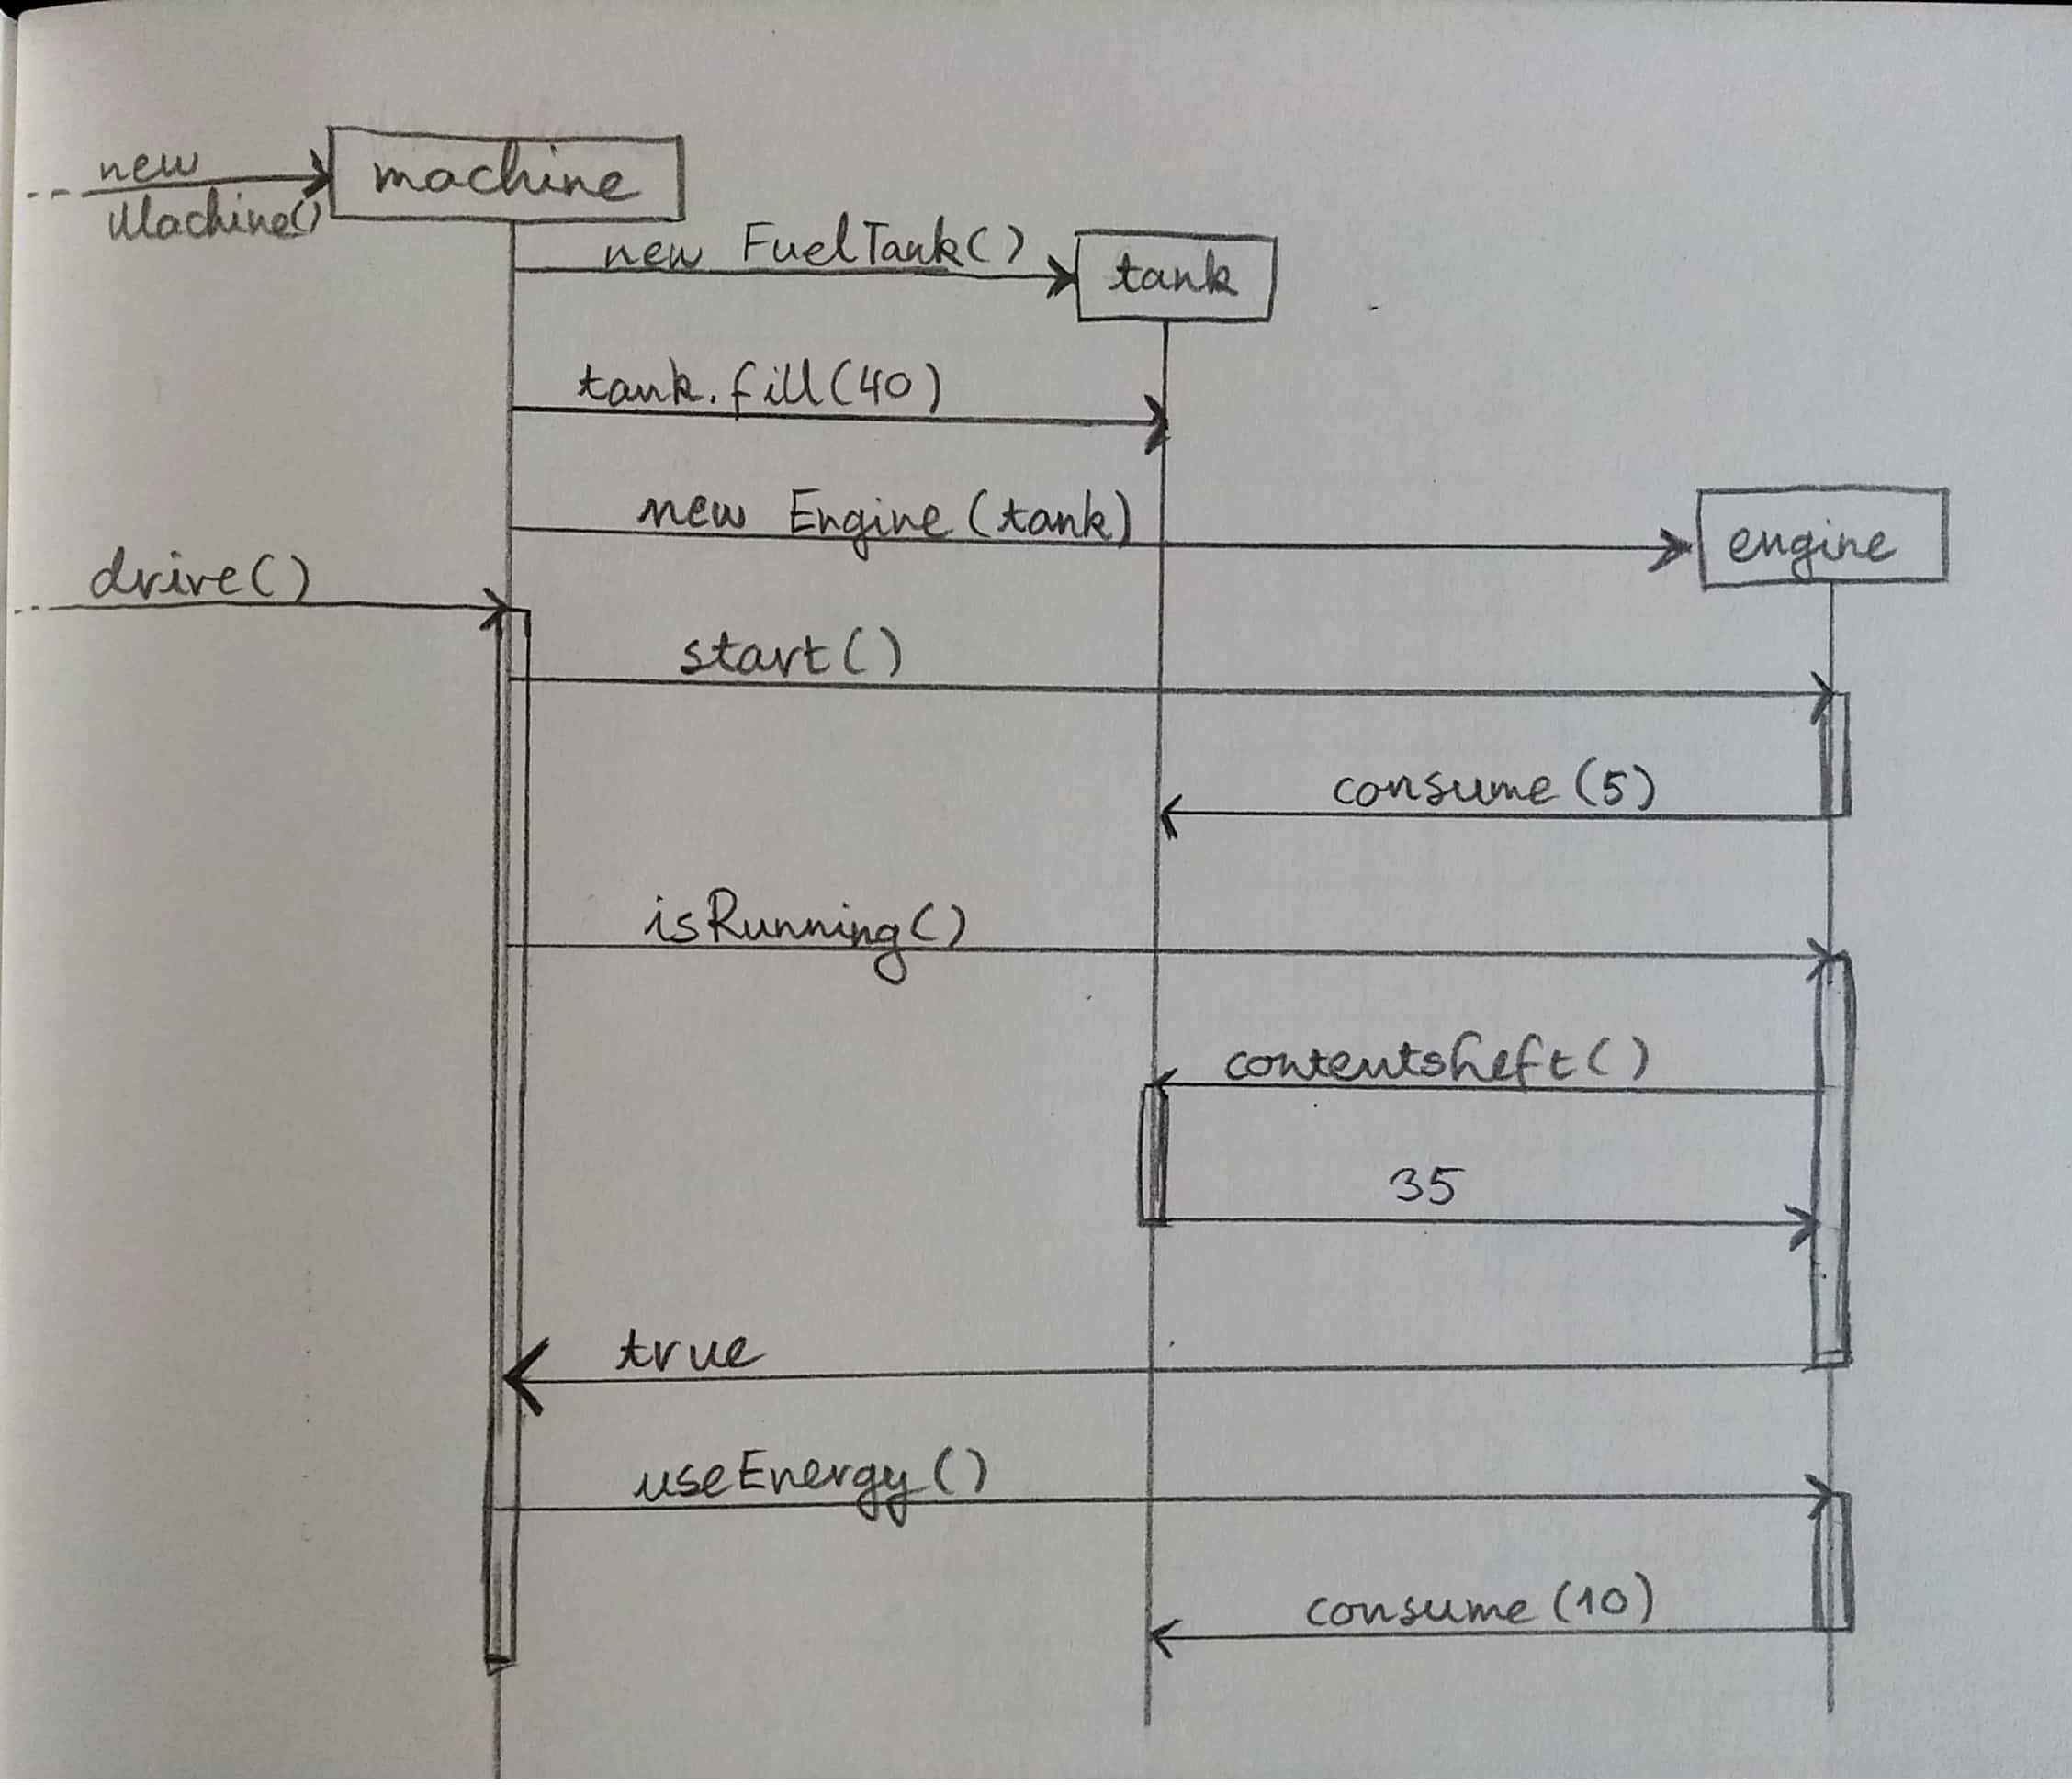 new
Machine()
machine
new FuelTank()
tank
tank.fill(40)
new Engine(tank)
engine
drive()
start()
consume(5)
isRunning()
contentsheft()
35
true
useEnergy()
consume(10)